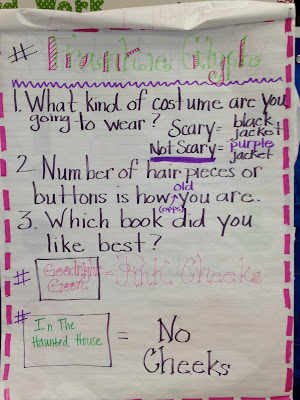 # Glyph
1. What kind of costume are you
going to wear?
Scary = black
jacket
Not Scary = purple
jacket
2. Number of hair pieces or
buttons is how old you are.
(oops)
3. Which book did you
like best?
# Goodnight
Goon = Pink Cheeks
# In The
Haunted House = No
Cheeks